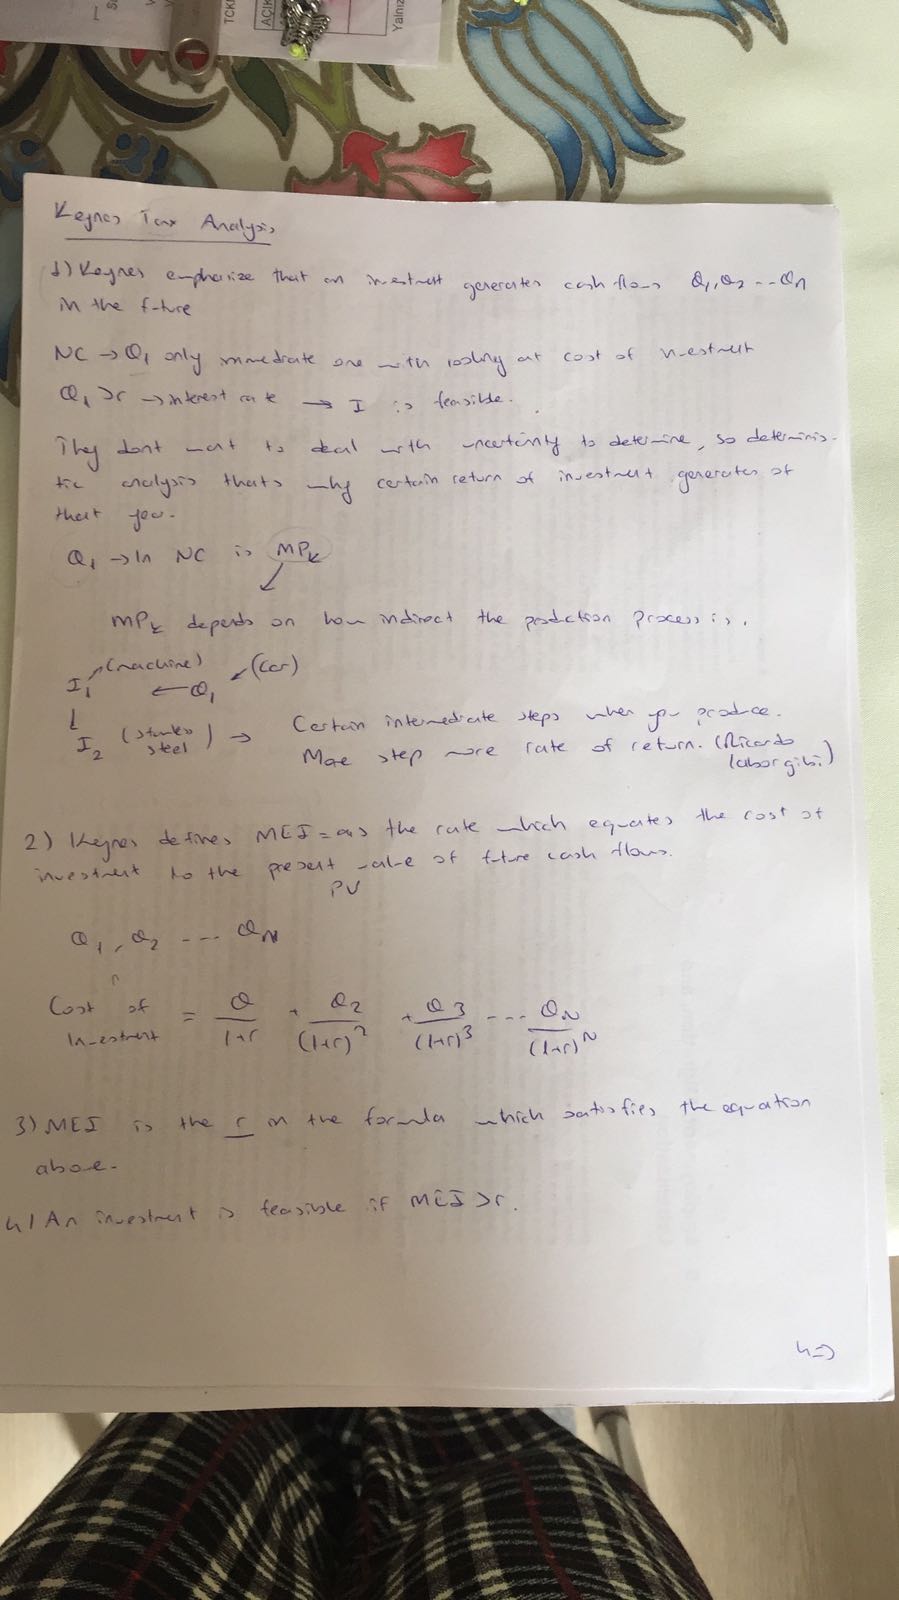 TCKİ
AÇIK
Yalnız
Keynes Tax Analysis
1) Keynes emphasize that an investment generates cash flows Q1, Q2 -- Qn
in the future
NC → Q1 only immediate one with looking at cost of investment
Q1 > r → interest rate → I is feasible.
They dont want to deal with uncertainty to determine, so determinis-
tic analysis thats why certain return of investment generates at
that year.
Q1 → In NC is MPK
MPK depends on how indirect the production process is.
I1 (machine) ← Q1 (car)
I2 (stainless steel) → Certain intermediate steps when you produce.
More step more rate of return. (Ricardo
labor gibi)
2) Keynes defines MEI = as the rate which equates the cost of
investment to the present value of future cash flows.
PV
Q1, Q2 --- QN
Cost of Investment = Q/1+r + Q2/(1+r)^2 + Q3/(1+r)^3 --- QN/(1+r)^N
3) MEI is the r in the formula which satisfies the equation
above.
4) An investment is feasible if MEI > r.
4⇒